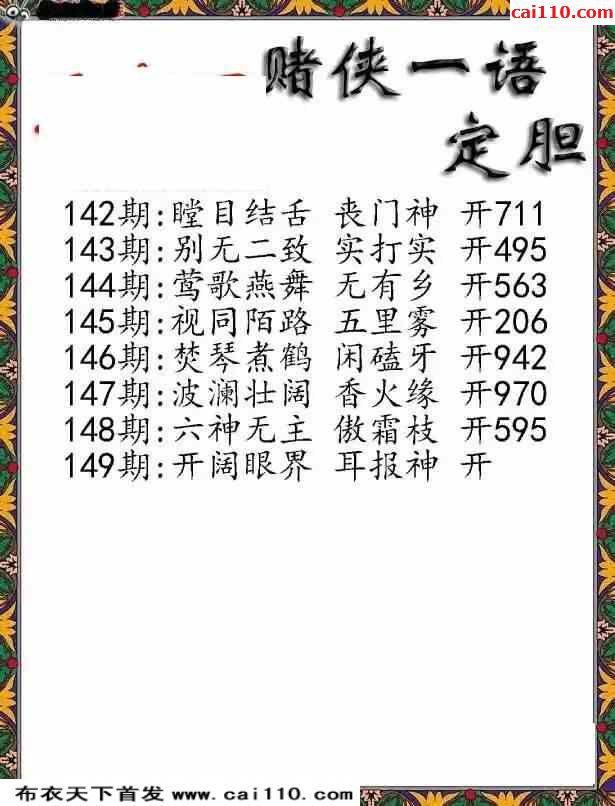 cai110.com
赌侠一语
定胆
142期:瞠目结舌 丧门神 开711
143期:别无二致 实打实 开495
144期:莺歌燕舞 无有乡 开563
145期:视同陌路 五里雾 开206
146期:焚琴煮鹤 闲磕牙 开942
147期:波澜壮阔 香火缘 开970
148期:六神无主 傲霜枝 开595
149期:开阔眼界 耳报神 开
布衣天下首发 www.cai110.com